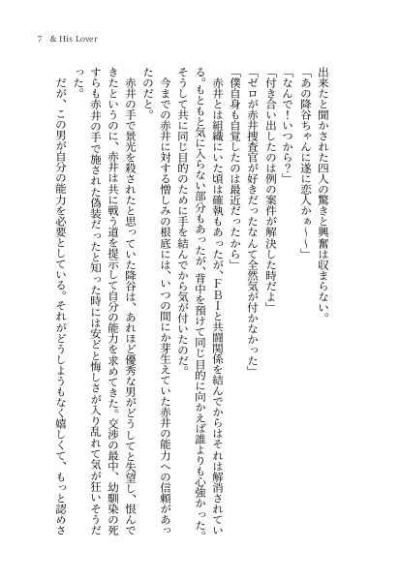 7 & His Lover
出来たと聞かされた四人の驚きと興奮は収まらない。
「あの降谷ちゃんに遂に恋人かぁ〜〜」
「なんで！いつから？」
「付き合い出したのは例の案件が解決した時だよ」
「ゼロが赤井捜査官が好きだったなんて全然気が付かなかった」
「僕自身も自覚したのは最近だったから」
赤井とは組織にいた頃は確執もあったが、ＦＢＩと共闘関係を結んでからはそれは解消されてい
る。もともと気に入らない部分もあったが、背中を預けて同じ目的に向かえば誰よりも心強かった。
そうして共に同じ目的のために手を結んでから気が付いたのだ。
今までの赤井に対する憎しみの根底には、いつの間にか芽生えていた赤井の能力への信頼があっ
たのだと。
赤井の手で景光を殺されたと思っていた降谷は、あれほど優秀な男がどうしてと失望し、恨んで
きたというのに、赤井は共に戦う道を提示して自分の能力を求めてきた。交渉の最中、幼馴染の死
すらも赤井の手で施された偽装だったと知った時には安どと悔しさが入り乱れて気が狂いそうだ
った。
だが、この男が自分の能力を必要としている。それがどうしようもなく嬉しくて、もっと認めさ